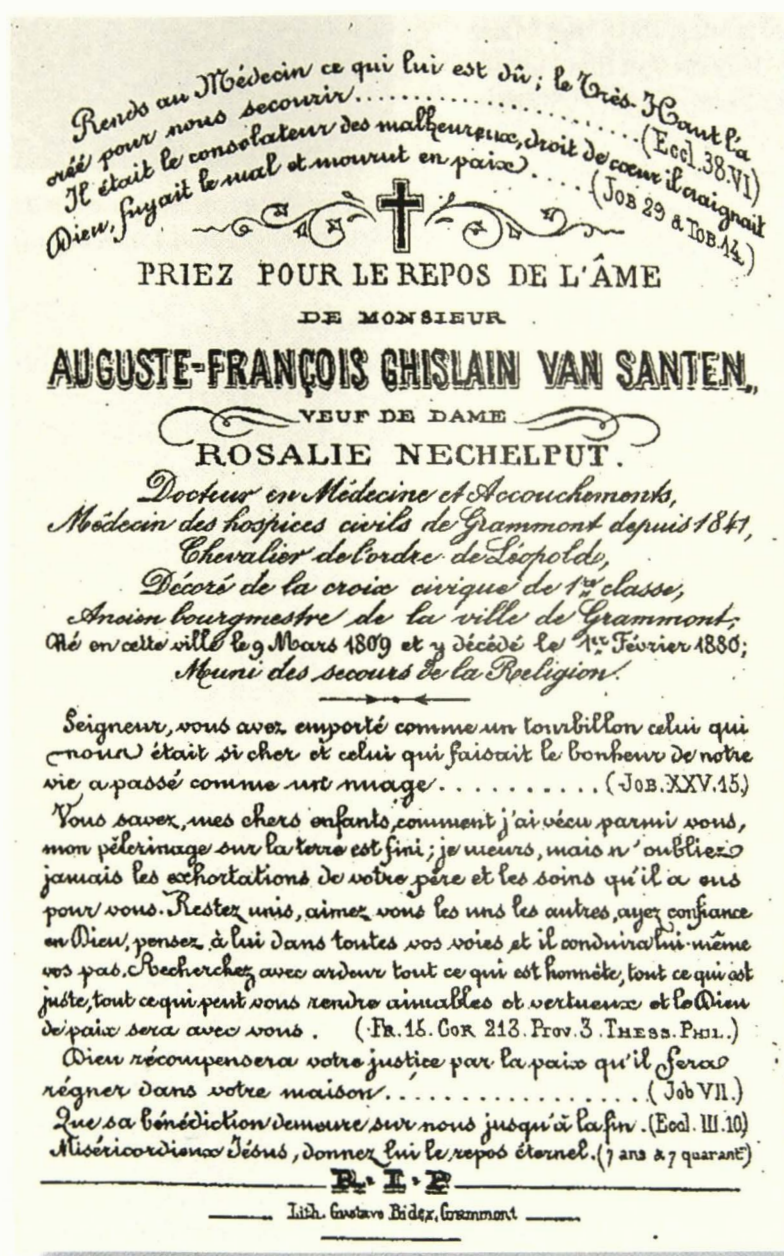 Rends au Médecin ce qui lui est dû; le Très-Haut l'a
créé pour nous secourir..............................(Eccl. 38.VI)
Il était le consolateur des malheureux, droit de cœur il craignait
Dieu, fuyait le mal et mourut en paix.....(JOB 29 & TOB.14.)
PRIEZ POUR LE REPOS DE L'ÂME
DE MONSIEUR
AUGUSTE-FRANÇOIS GHISLAIN VAN SANTEN,,
VEUF DE DAME
ROSALIE NECHELPUT.
Docteur en Médecine et Accouchements,
Médecin des hospices civils de Grammont depuis 1841,
Chevalier de l'ordre de Léopold,
Décoré de la croix civique de 1re classe,
Ancien bourgmestre de la ville de Grammont,
Né en cette ville le 9 Mars 1809 et y décédé le 1er Février 1880;
Muni des secours de la Religion.
Seigneur, vous avez emporté comme un tourbillon celui qui
nous était si cher et celui qui faisait le bonheur de notre
vie a passé comme un nuage..........(JOB.XXV.15.)
Vous savez, mes chers enfants, comment j'ai vécu parmi vous,
mon pêlerinage sur la terre est fini; je meurs, mais n'oubliez
jamais les exhortations de votre père et les soins qu'il a eus
pour vous. Restez unis, aimez vous les uns les autres, ayez confiance
en Dieu, pensez à lui dans toutes vos voies et il conduira lui-même
vos pas. Recherchez avec ardeur tout ce qui est honnête, tout ce qui est
juste, tout ce qui peut vous rendre aimables et vertueux et le Dieu
de paix sera avec vous. (FR.16. COR 213. PROV.3. THESS. PHIL.)
Dieu récompensera votre justice par la paix qu'il fera
régner dans votre maison....................(Job VII.)
Que sa bénédiction demeure sur nous jusqu'à la fin. (Eccl. III.10)
Miséricordieux Jésus, donnez lui le repos éternel. (7 ans & 7 quarant)
R.I.P
Lith. Gustave Bidez, Grammont